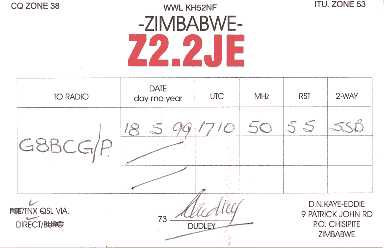 CQ ZONE 38 WWL KH52NF ITU. ZONE 53
-ZIMBABWE-
Z2.2JE
TO RADIO DATE day mo year UTC MHz RST 2-WAY
G8BCG/P. 18 5 99 1710 50 55 SSB
PSE/TNX QSL VIA.
DIRECT/BURO
73 Dudley
DUDLEY
D.N.KAYE-EDDIE
9 PATRICK JOHN RD
P.O. CHISIPITE
ZIMBABWE